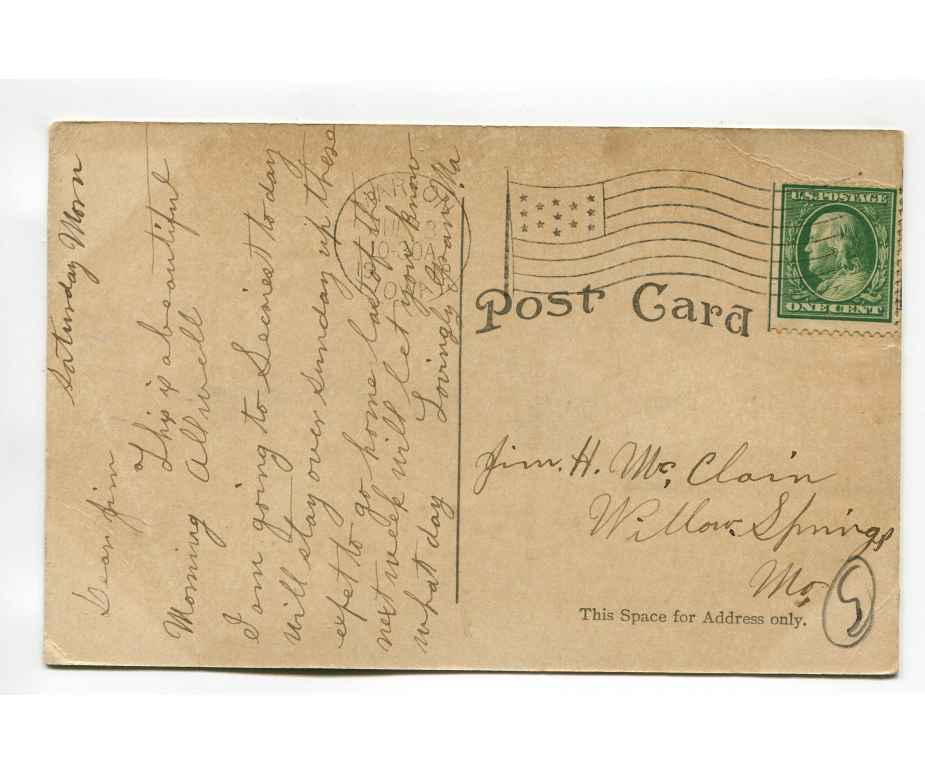 Saturday Morn
Dear Jim
This is a beautiful
Morning All well
I am going to
to day
will stay over Sunday up there
expet to go home last of the
next week will let you know
what day Lovingly
Ma
U.S. POSTAGE
ONE CENT
Post Card
Jim. H. Mc, Clain
Willow. Springs
Mo,
This Space for Address only.
5